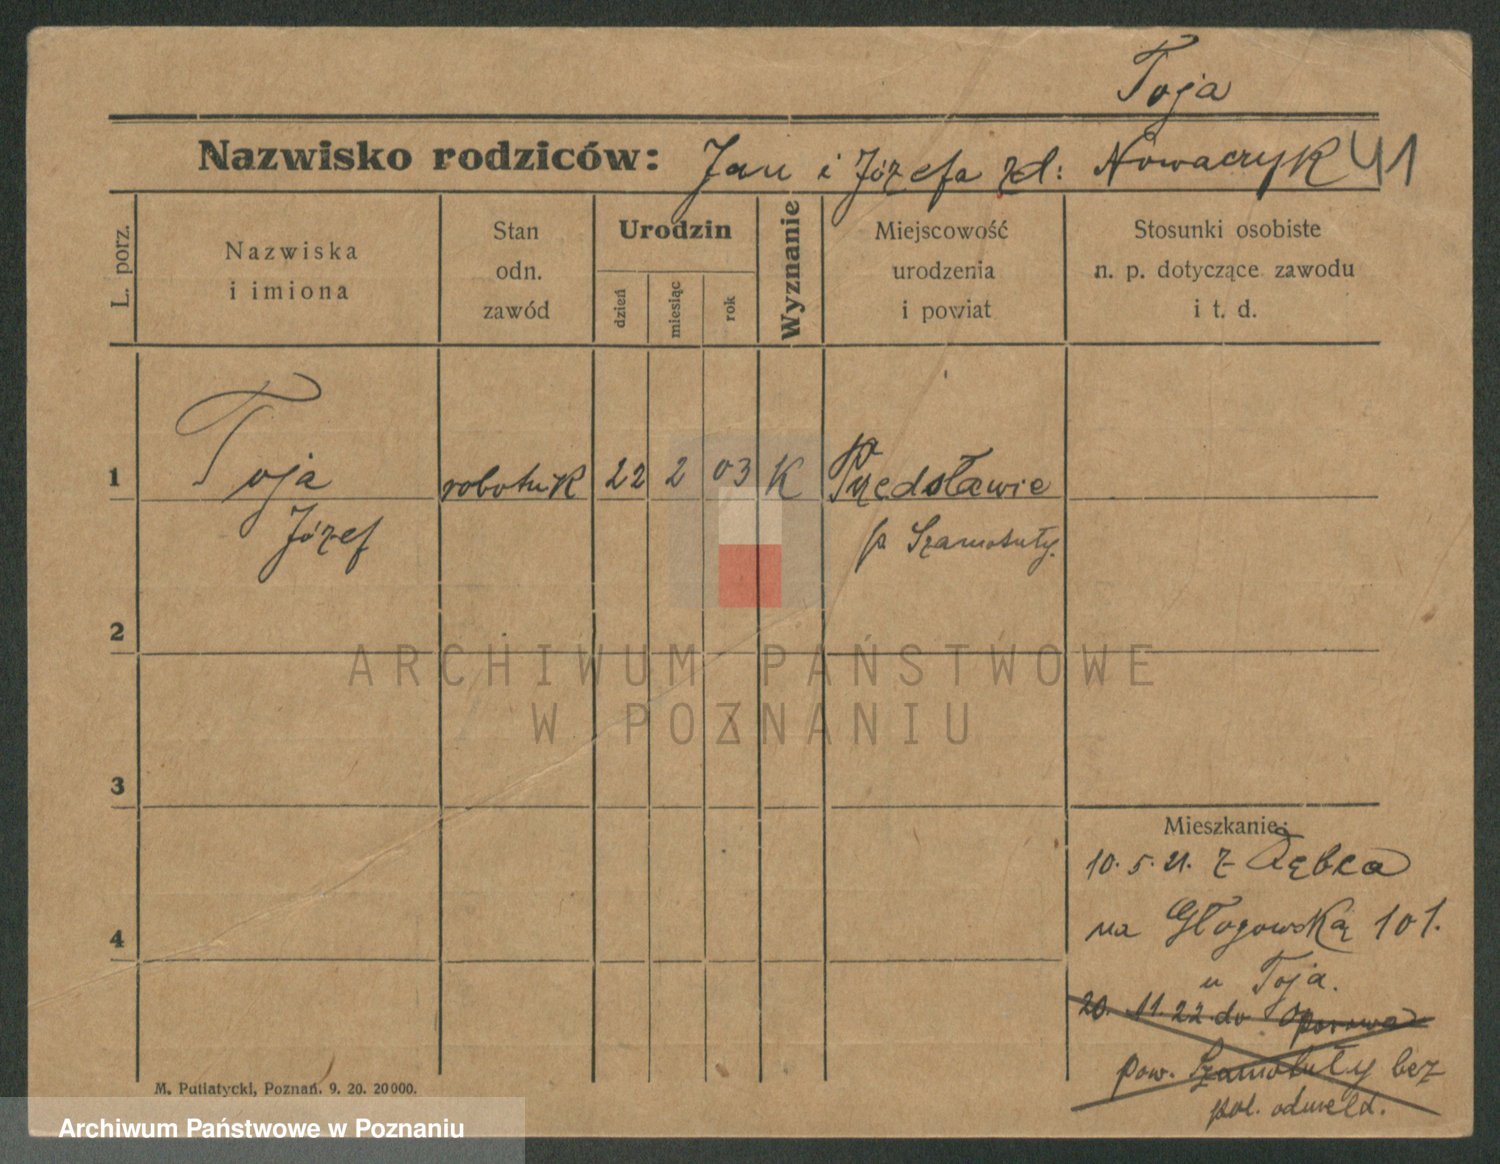 Toja
Nazwisko rodziców: Jan i Józefa zd: Nowaczyk 41
L. porz.
Nazwiska
i imiona
Stan
odn.
zawód
Urodzin
dzień
miesiąc
rok
Wyznanie
Miejscowość
urodzenia
i powiat
Stosunki osobiste
n. p. dotyczące zawodu
i t. d.
1 Toja robotnik 22 2 03 K Przedsławie
Józef p Szamotuły.
2
ARCHIWUM PAŃSTWOWE
W POZNANIU
3
Mieszkanie:
10. 5. 21. z Dębca
na Głogowską 101.
4
u Toja.
20. 11. 22 do
pow. Szamotuły bez
pol. odmeld.
M. Putiatycki, Poznań. 9. 20. 20000.
Archiwum Państwowe w Poznaniu